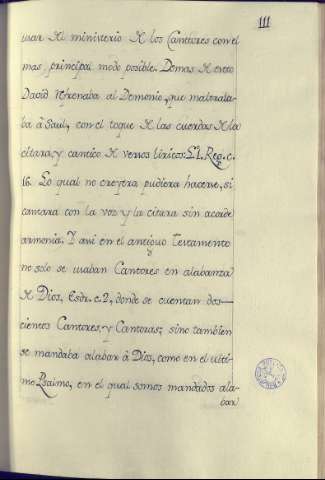 111
usar el ministerio de los Cantores con el
mas, principal modo posible. Demas de esto
David refrenaba al Demonio, que maltrata-
ba à Saul, con el toque de las cuerdas de la
citara, y cantico de versos liricos: L.1. Reg. c.
16. Lo qual no creyera pudiera hacerse, si
cantara con la voz y la citara sin acorde
armonia. Y asi en el antiguo Testamento
no solo se usaban Cantores en alabanza
de Dios, Esdr. c. 2, donde se cuentan dos-
cientos Cantores, y Cantoras; sino tambien
se mandaba alabar à Dios, como en el ulti-
mo Psalmo, en el qual somos mandados ala-
bar